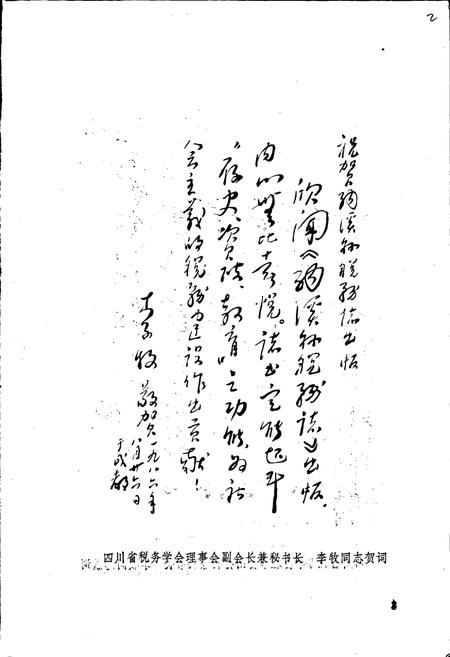 2
祝贺纳溪县税务志出版
欣闻《纳溪县税务志》出版，
内心无比喜悦。志书定能起到
“存史、资政、教育”之功能，为社
会主义的税务建设作出贡献！
李牧 敬贺 一九八六年
八月廿六日
于成都
四川省税务学会理事会副会长兼秘书长 李牧同志贺词
3